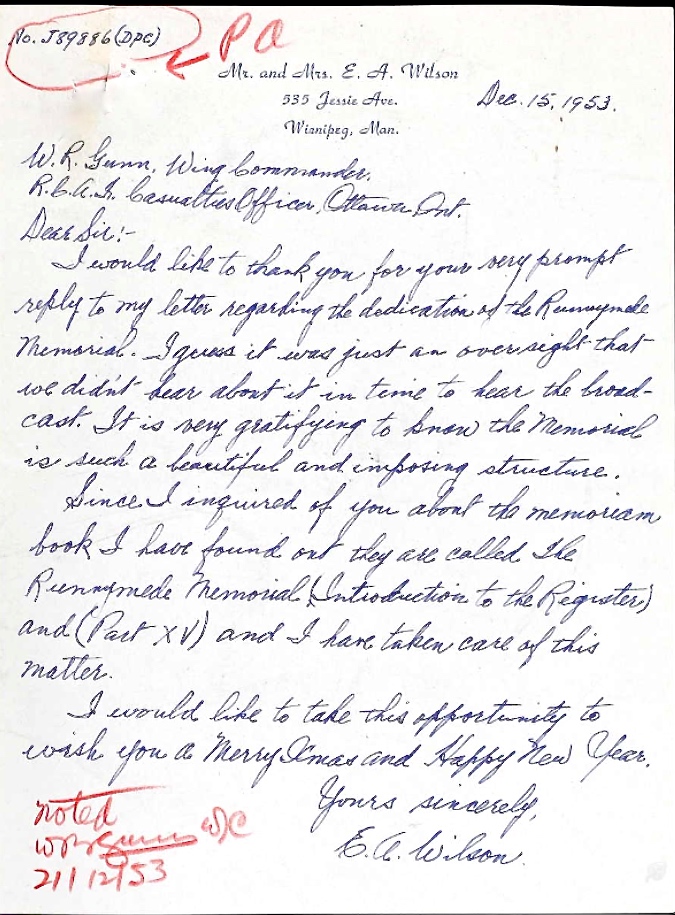 No. J89886 (DPC)
PC
Mr. and Mrs. E. A. Wilson
535 Jessie Ave.
Winnipeg, Man.
Dec. 15, 1953.
W. R. Gunn, Wing Commander,
R.C.A.F. Casualties Officer, Ottawa, Ont.
Dear Sir:-
I would like to thank you for your very prompt
reply to my letter regarding the dedication of the Runnymede
Memorial. I guess it was just an oversight that
we didn't hear about it in time to hear the broad-
cast. It is very gratifying to know the Memorial
is such a beautiful and imposing structure.
Since I inquired of you about the memoriam
book I have found out they are called The
Runnymede Memorial (Introduction to the Register)
and (Part XV) and I have taken care of this
matter.
I would like to take this opportunity to
wish you a Merry Xmas and Happy New Year.
Yours sincerely,
E. A. Wilson.
noted
WRGunn W/C
21/12/53